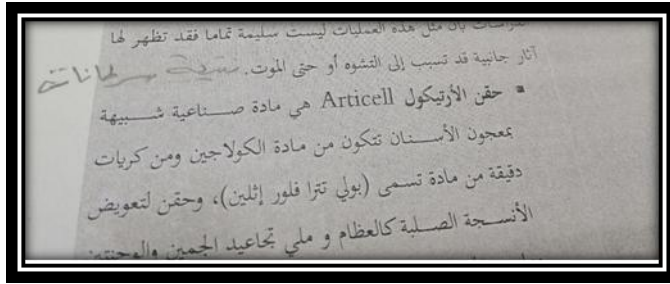 الدراسات بأن مثل هذه العمليات ليست سليمة تماما فقد تظهر لها
آثار جانبية قد تسبب إلى التشوه أو حتى الموت. سرطانات
▪ حقن الأرتيكول Articell هي مادة صناعية شبيهة
بمعجون الأسنان تتكون من مادة الكولاجين ومن كريات
دقيقة من مادة تسمى (بولي تترا فلور إثلين)، وحقن لتعويض
الأنسجة الصلبة كالعظام و ملي تجاعيد الجبين والوجنتين